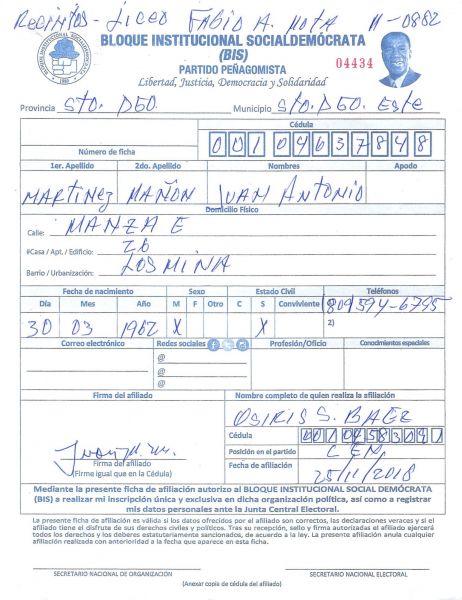 Recintos - Liceo Fabio A. Mota #-0882
BLOQUE INSTITUCIONAL SOCIALDEMÓCRATA
(BIS)
PARTIDO PEÑAGOMISTA
04434
Libertad, Justicia, Democracia y Solidaridad
Provincia Sto. Dgo. Municipio Sto. Dgo. Este
Cédula
Número de ficha 00104637848
1er. Apellido 2do. Apellido Nombres Apodo
Martinez Mañon Juan Antonio
Domicilio Físico
Calle: Manza E
#Casa / Apt. / Edificio: 26
Barrio / Urbanización: Los Mina
Fecha de nacimiento Sexo Estado Civil Teléfonos
Día Mes Año M F Otro C S Conviviente 809 594-6795
30 03 1962 X X 2)
Correo electrónico Redes sociales Profesión/Oficio Conocimientos especiales
@
@
@
Firma del afiliado Nombre completo de quien realiza la afiliación
Osiris S. Baez
Cédula
Posición en el partido CEN
Firma del afiliado
(Firme igual que en la Cédula)
Fecha de afiliación 25/11/2018
Mediante la presente ficha de afiliación autorizo al BLOQUE INSTITUCIONAL SOCIAL DEMÓCRATA
(BIS) a realizar mi inscripción única y exclusiva en dicha organización política, así como a registrar
mis datos personales ante la Junta Central Electoral.
La presente ficha de afiliación es válida si los datos ofrecidos por el afiliado son correctos, las declaraciones veraces y si el
afiliado tiene el disfrute de sus derechos civiles y políticos. Tras su recepción, sello y firma autorizadas el afiliado ejercerá
todos los derechos y los deberes estatutariamente sancionados, de acuerdo a la ley. La presente afiliación anula cualquier
afiliación realizada con anterioridad a la fecha que aparece en esta ficha.
SECRETARIO NACIONAL DE ORGANIZACIÓN SECRETARIO NACIONAL ELECTORAL
(Anexar copia de cédula del afiliado)